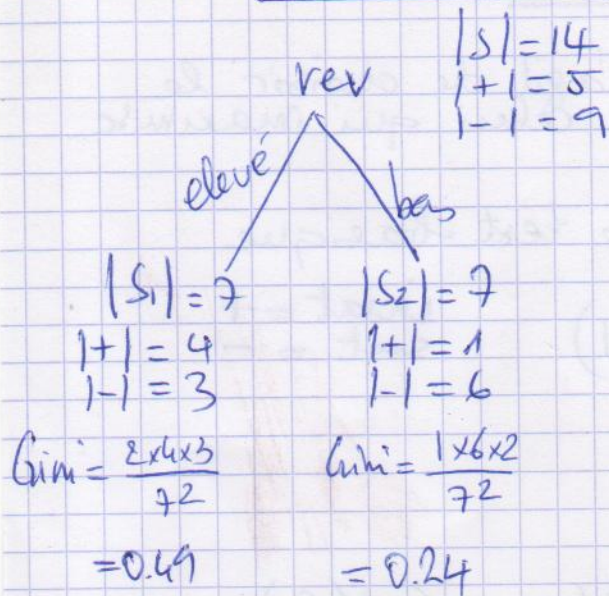 |S| = 14
|+| = 5
|-| = 9
rev
elevé
bas
|S1| = 7
|+| = 4
|-| = 3
Gini = 2x4x3 / 7^2
= 0.49
|S2| = 7
|+| = 1
|-| = 6
Gini = 1x6x2 / 7^2
= 0.24